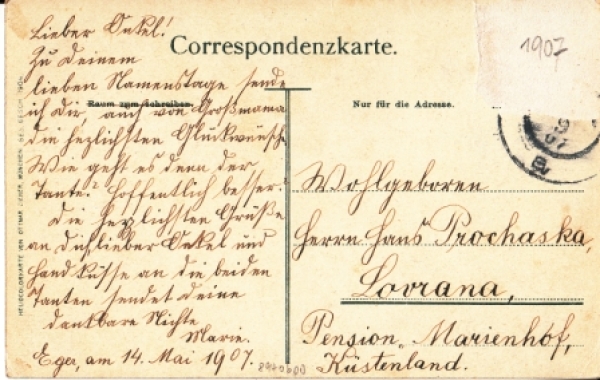 Correspondenzkarte.
1907
Raum zum Schreiben.
Nur für die Adresse.
Lieber Onkel!
Zu Deinem
lieben Namenstage sende
ich Dir, auch von Großmama
die herzlichsten Glückwünsche.
Wie geht es denn der
Tante? Hoffentlich besser?
Die herzlichsten Grüße
an Dich, lieber Onkel und
Handküsse an die beiden
Tanten sendet deine
dankbare Nichte
Marie.
Eger, am 14. Mai 1907.
Wohlgeboren
Herrn Hans Prochaska,
Lovrana,
Pension "Marienhof,
Küstenland.
HELIOCOLORKARTE VON OTTMAR ZIEHER, MÜNCHEN.